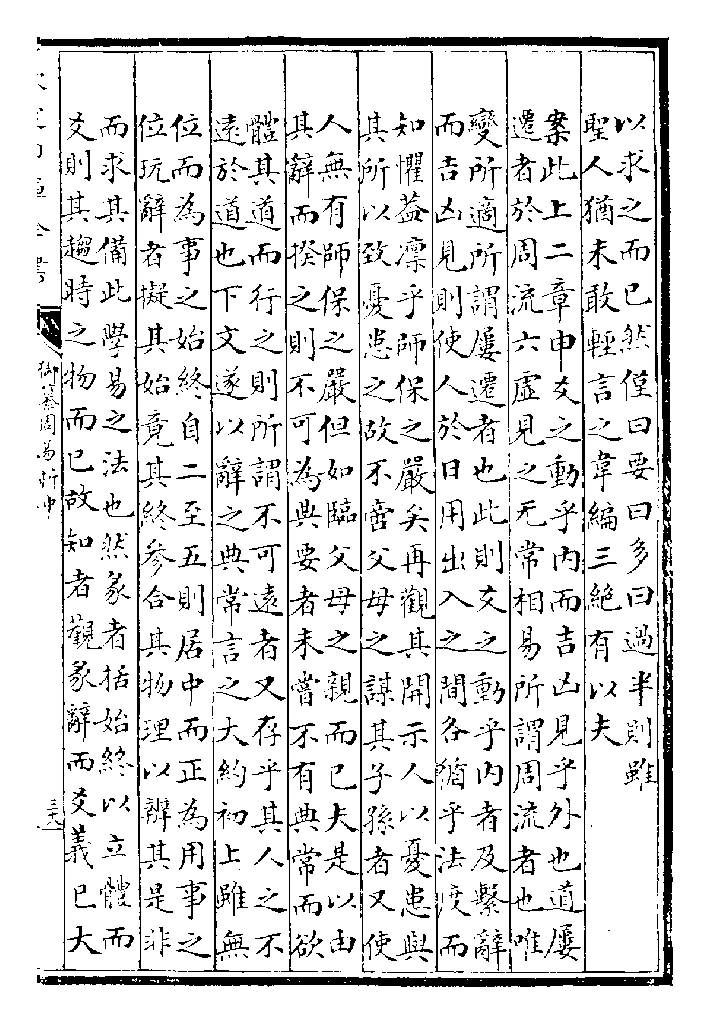 以求之而已然僅曰要曰多曰過半則雖
聖人猶未敢輕言之韋編三絕有以夫
案此上二章申爻之動乎內而吉凶見乎外也道屢
遷者於周流六虛見之无常相易所謂周流者也唯
變所適所謂屢遷者也此則爻之動乎內者及繫辭
而吉凶見則使人於日用出入之間各循乎法度而
知懼葢凛乎師保之嚴矣再觀其開示人以憂患與
其所以致憂患之故不啻父母之謀其子孫者又使
人無有師保之嚴但如臨父母之親而已夫是以由
其辭而揆之則不可為典要者未嘗不有典常而欲
體其道而行之則所謂不可遠者又存乎其人之不
遠於道也下文遂以辭之典常言之大約初上雖無
位而為事之始終自二至五則居中而正為用事之
位玩辭者擬其始竟其終參合其物理以辨其是非
而求其備此學易之法也然彖者括始終以立體而
爻則其趨時之物而已故知者觀彖辭而爻義已大
御纂周易折中